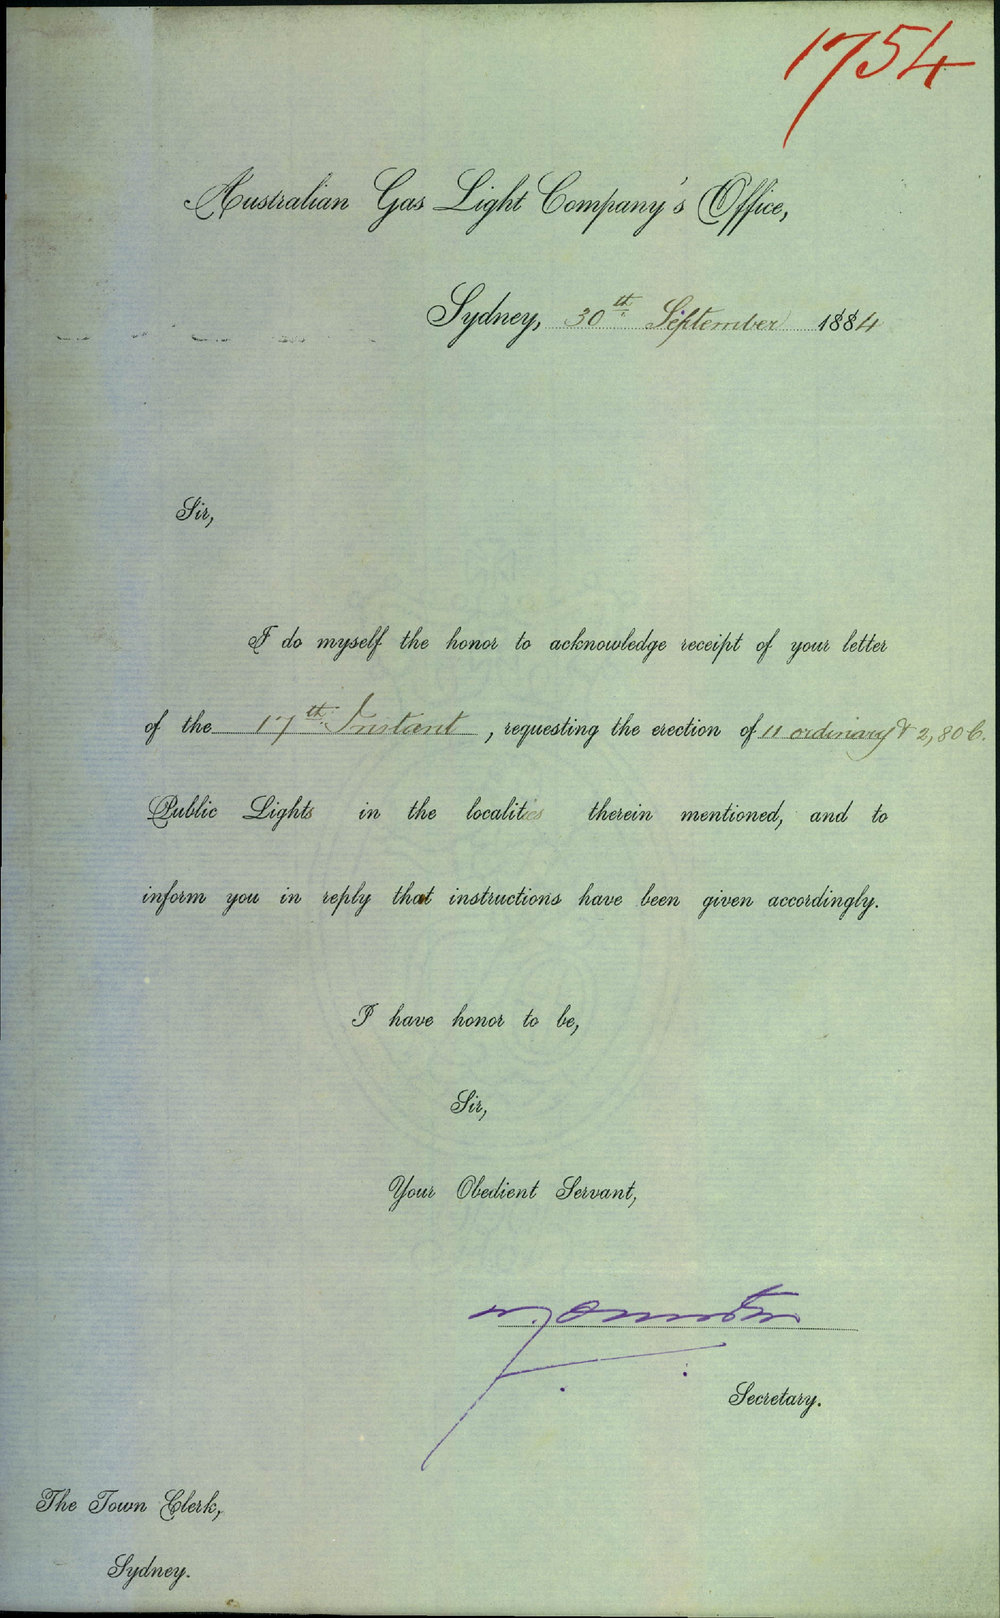 1754
Australian Gas Light Company's Office,
Sydney, 30th September 1884
Sir,
I do myself the honor to acknowledge receipt of your letter
of the 17th Instant, requesting the erection of 11 ordinary & 2, 80 C.
Public Lights in the localities therein mentioned, and to
inform you in reply that instructions have been given accordingly.
I have honor to be,
Sir,
Your Obedient Servant,
Secretary.
The Town Clerk,
Sydney.